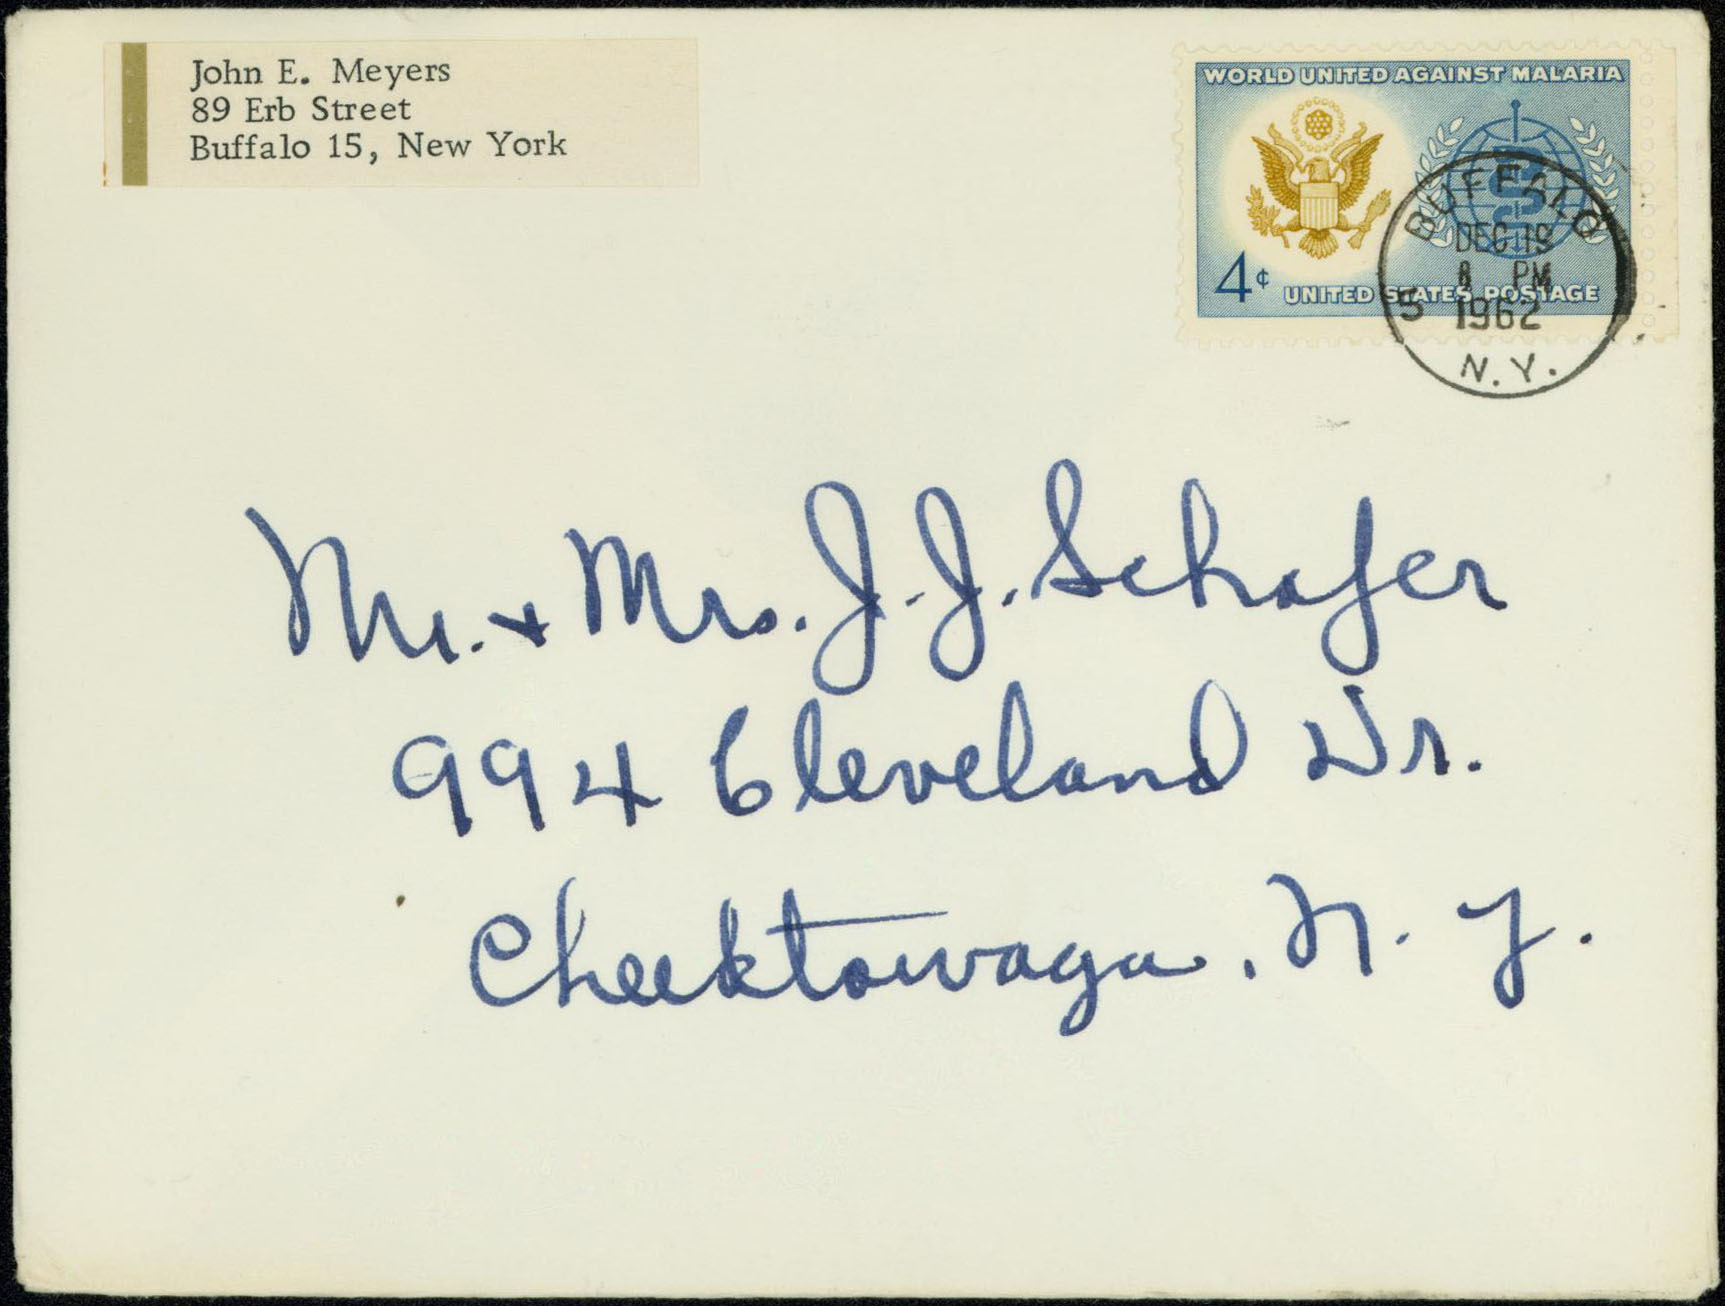 John E. Meyers
89 Erb Street
Buffalo 15, New York
WORLD UNITED AGAINST MALARIA
4¢ UNITED STATES POSTAGE
BUFFALO
DEC 19
PM
1962
5
N.Y.
Mr. + Mrs. J. J. Schafer
994 Cleveland Dr.
Cheektowaga, N. Y.